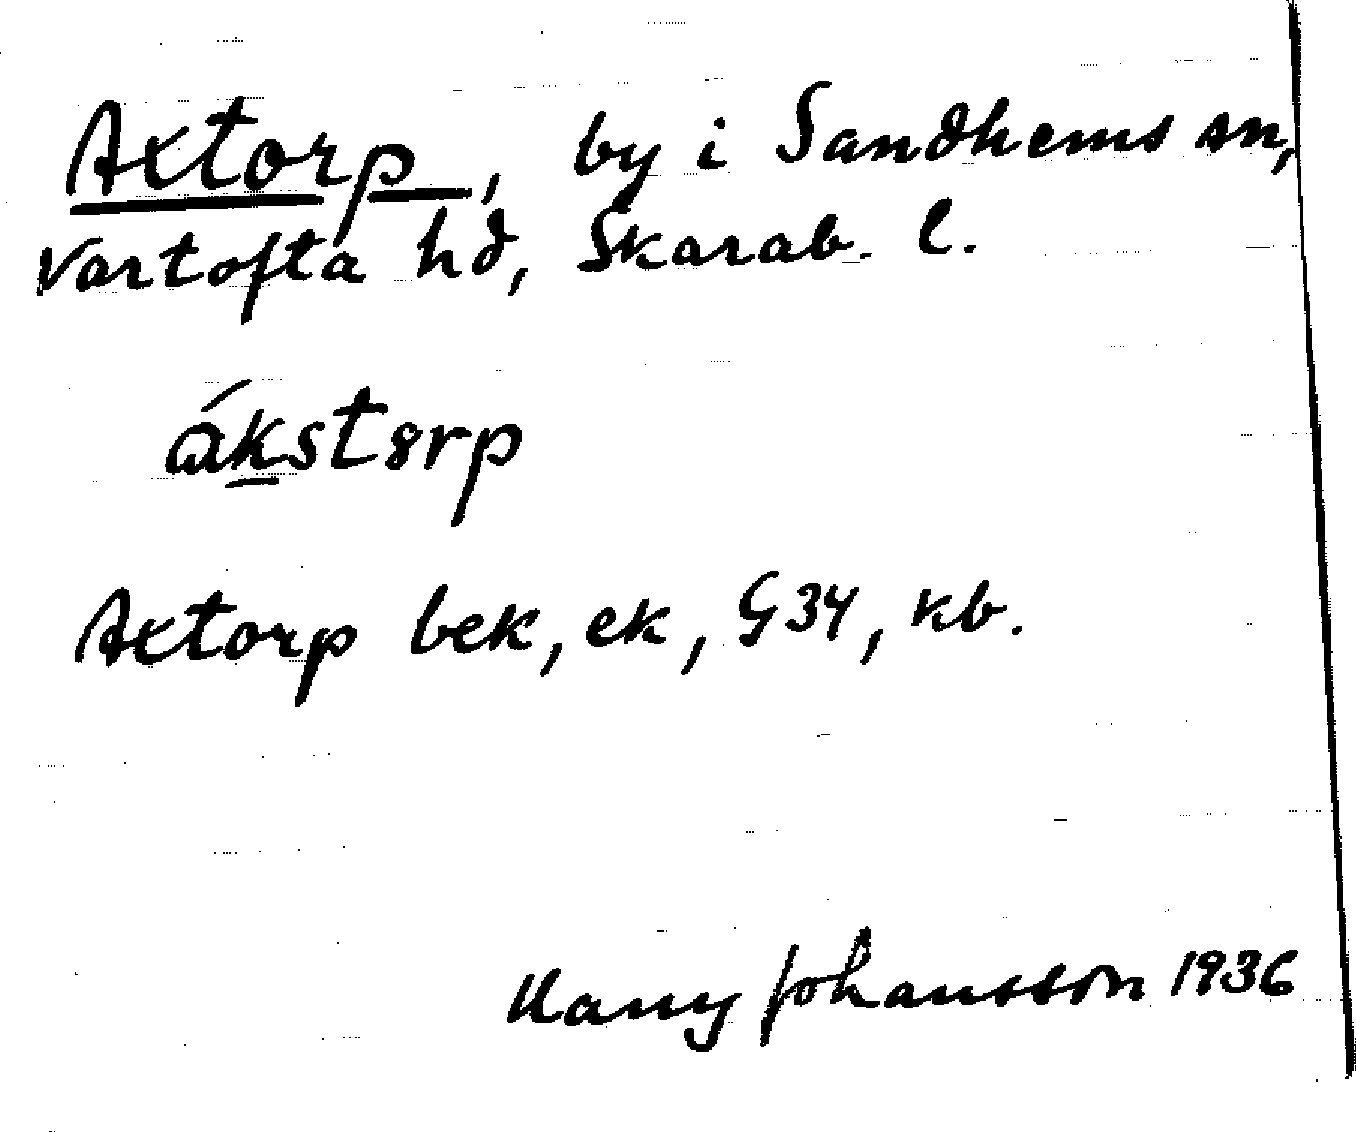 Axtorp, by i Sandhems sn,
Vartofta hd, Skarab. l.
ákstørp
Axtorp bek, ek, G34, kb.
Harry Johansson 1936